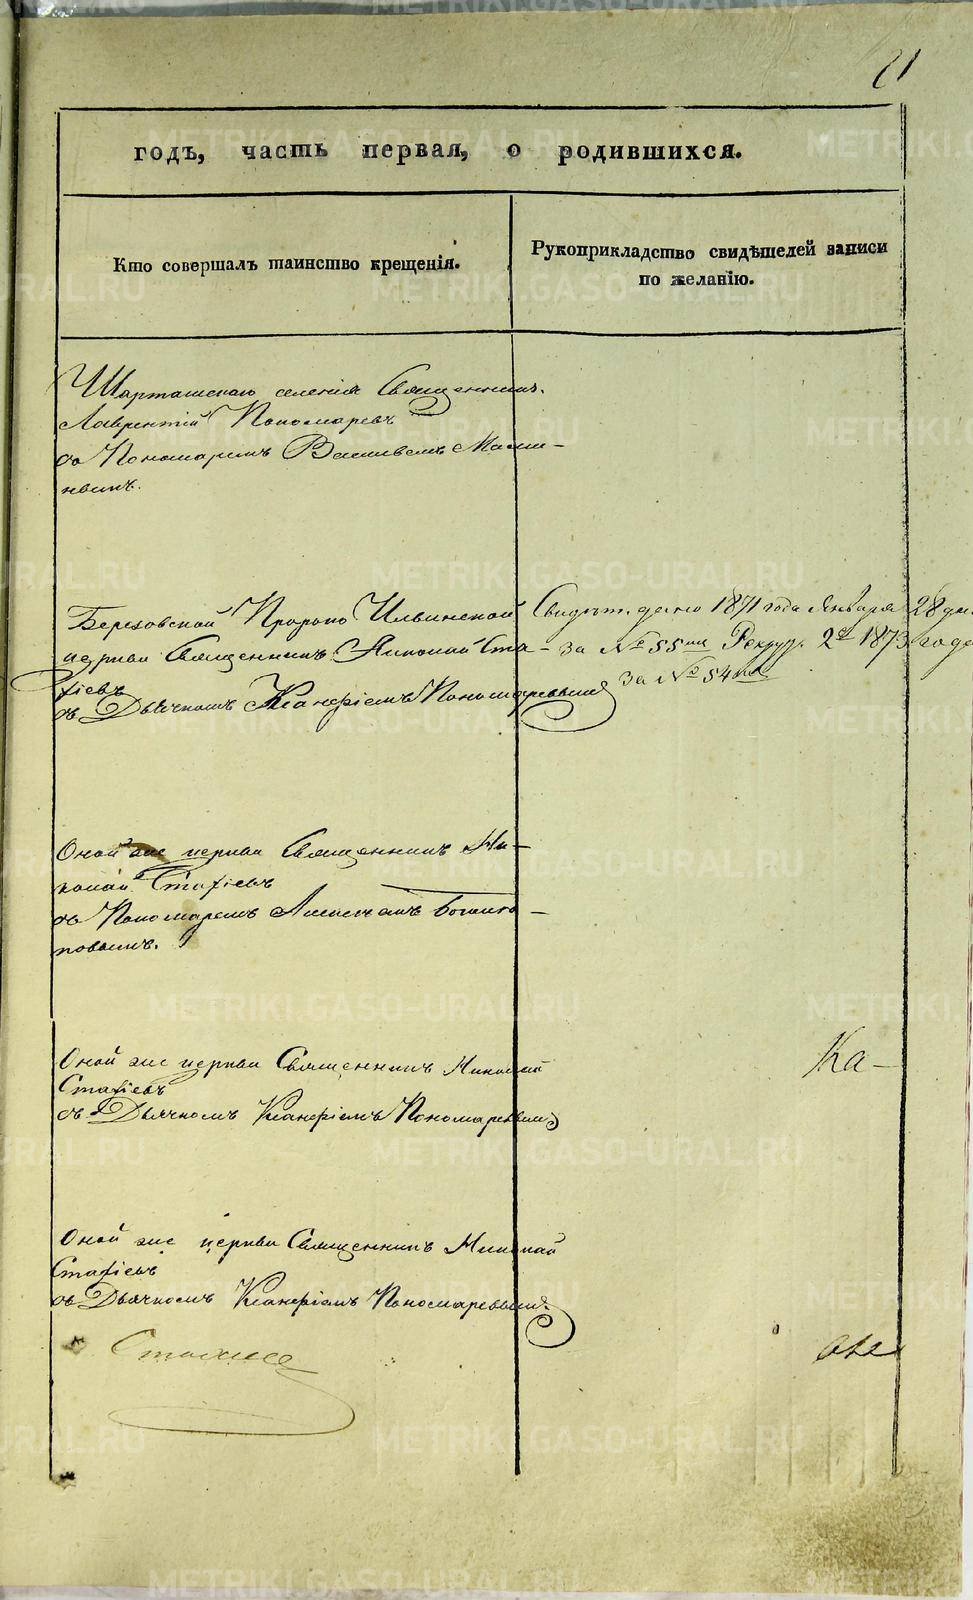 21
годъ, часть первая, о родившихся.
Кто совершалъ таинство крещенія.
Рукоприкладство свидѣтелей записи
по желанію.
Шарташскаго селенія Священникъ
Лаврентій Пономаревъ
съ Пономаремъ
Березовской Пророко Ильинской
церкви Священникъ Николай Ста-
фіевъ
съ Дьячкомъ Ксанфіемъ Пономаревымъ
Свидѣт. дано 1871 года Января 28 дн.
за № 55мъ 2й 1873 года
за № 54мъ
Оной же церкви Священникъ Ни-
колай Стафіевъ
съ Пономаремъ
повымъ.
Оной же церкви Священникъ Николай
Стафіевъ
съ Дьячкомъ Ксанфіемъ Пономаревымъ
Ка-
Оной же церкви Священникъ Николай
Стафіевъ
съ Дьячкомъ Ксанфіемъ Пономаревымъ
METRIKI.GASO-URAL.RU